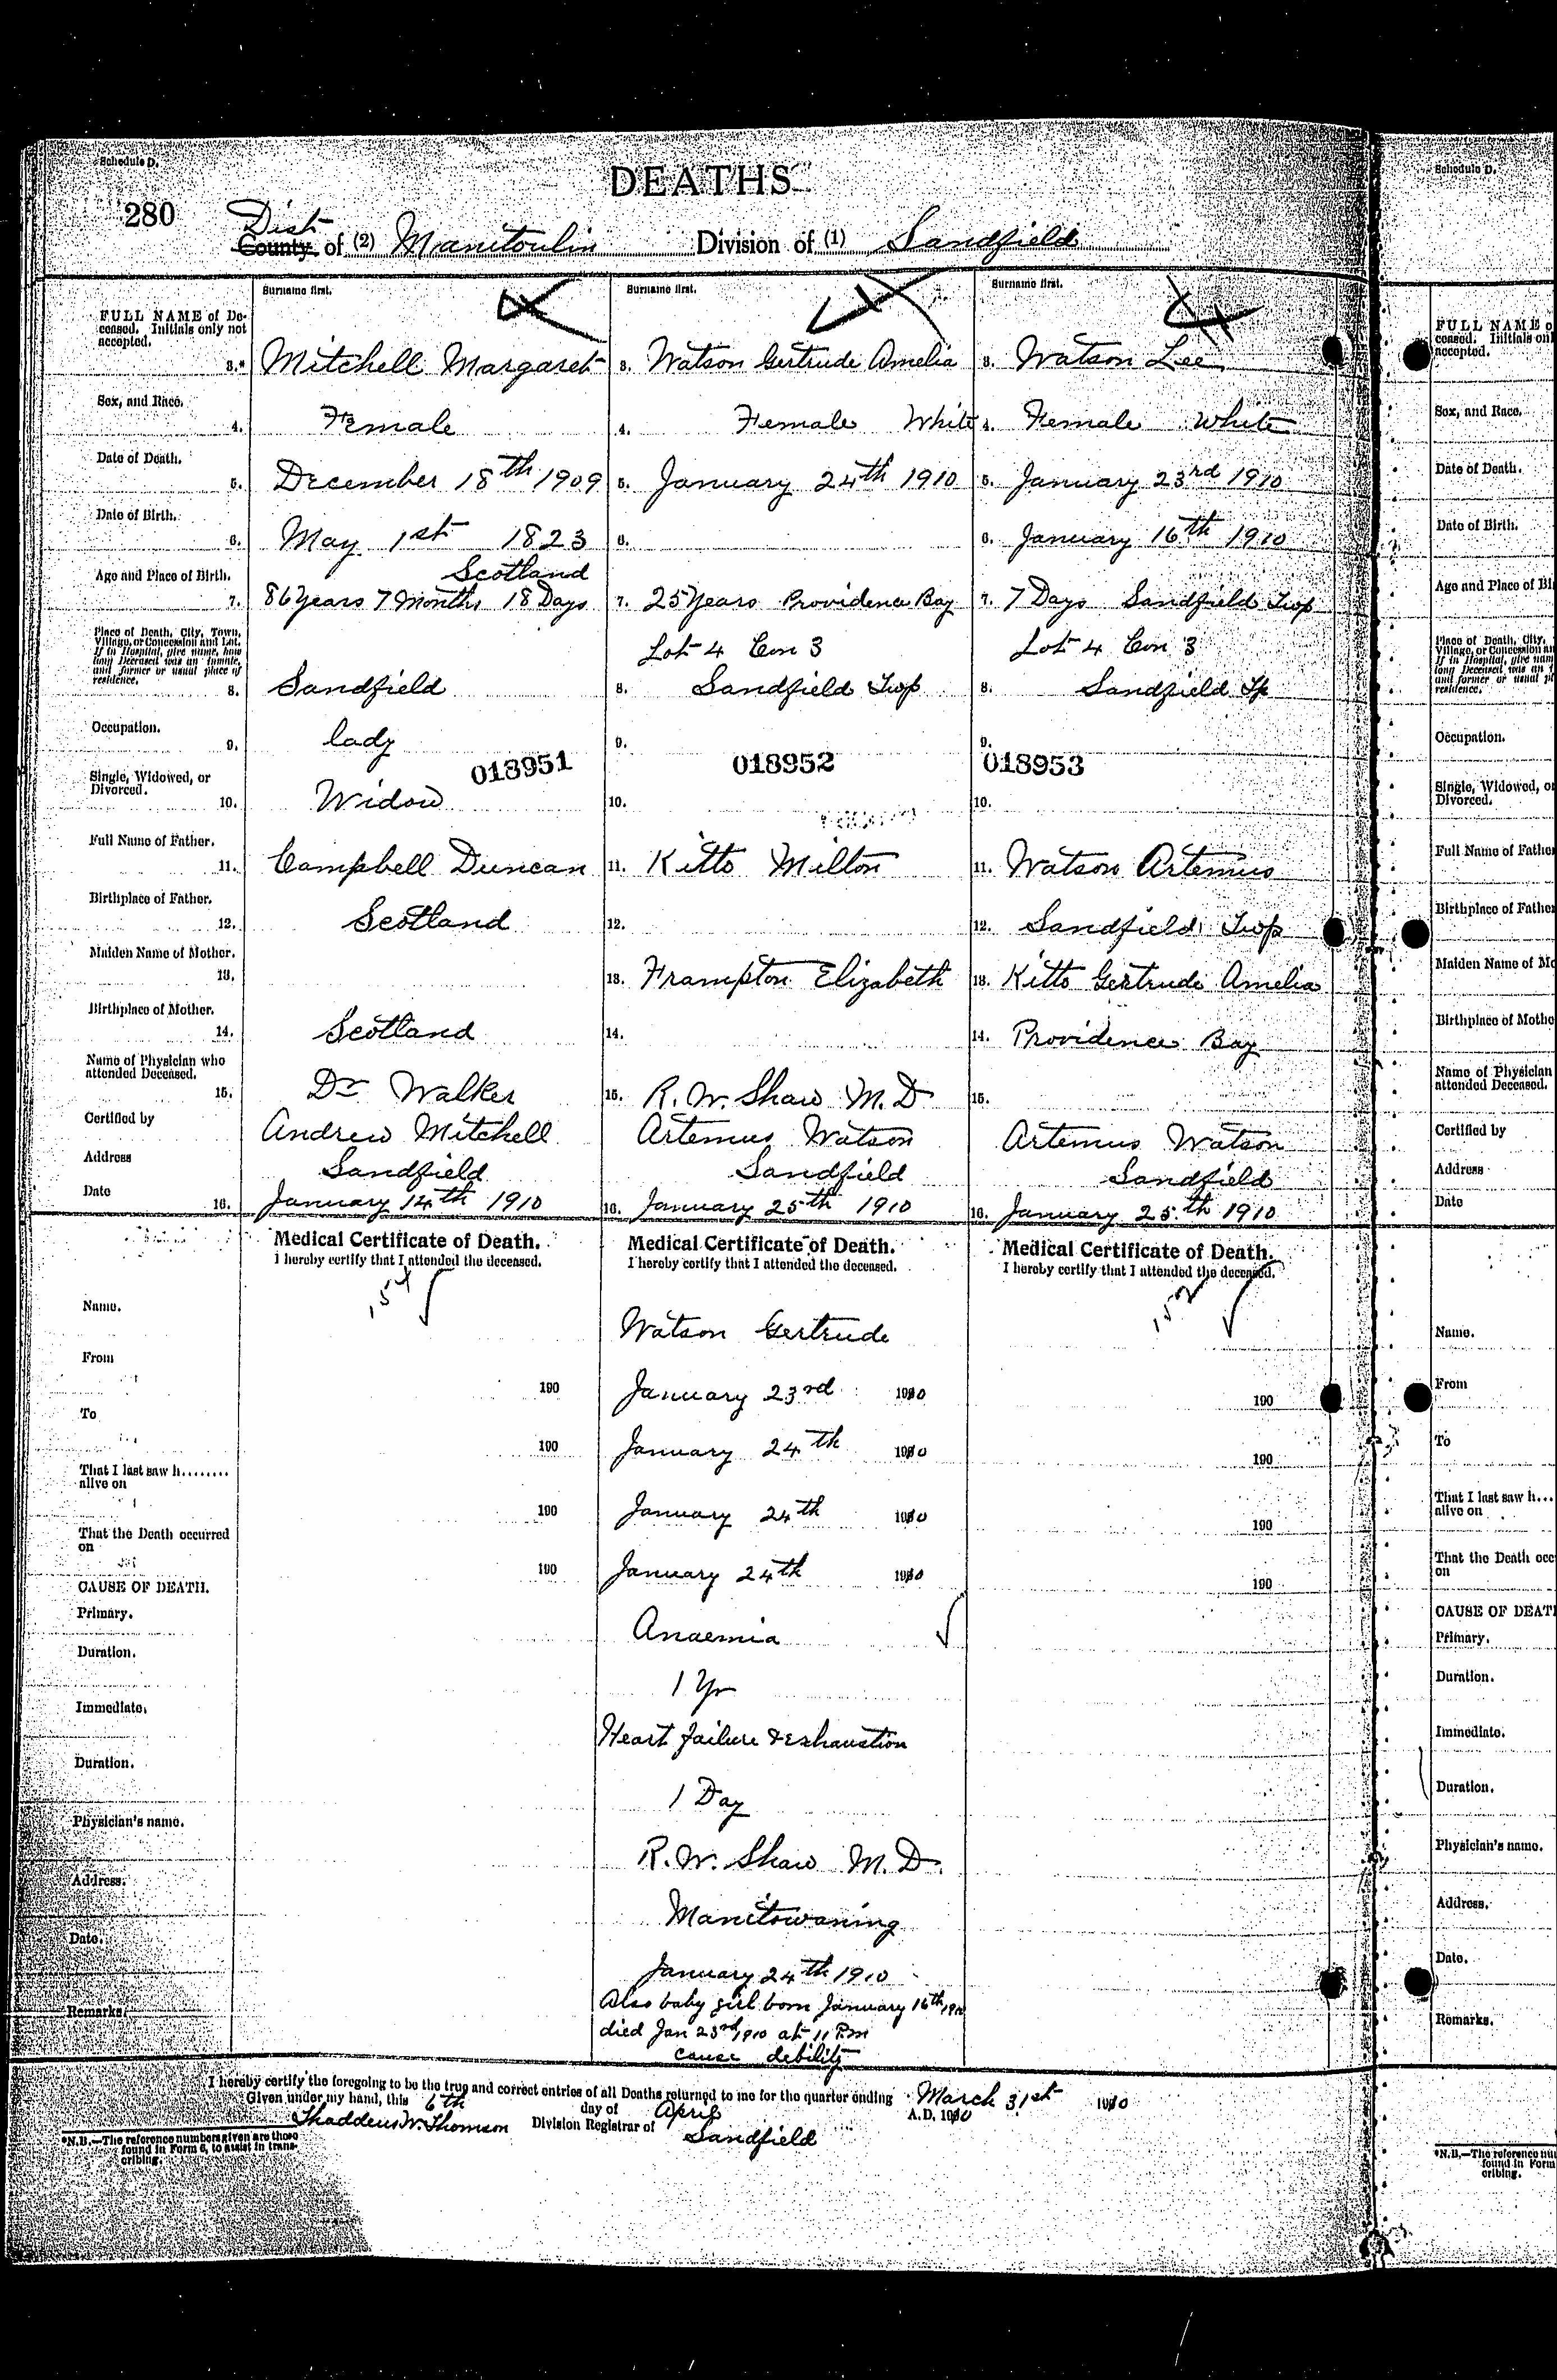 Schedule D.
DEATHS
280
Dist
County of (2) Manitoulin Division of (1) Sandfield
Surname first. Surname first. Surname first.
FULL NAME of Deceased. Initials only not accepted. 3.* Mitchell Margaret 3. Watson Gertrude Amelia 3. Watson Lee
Sex, and Race. 4. Female 4. Female White 4. Female White
Date of Death. 5. December 18th 1909 5. January 24th 1910 5. January 23rd 1910
Date of Birth. 6. May 1st 1823 6. 6. January 16th 1910
Scotland
Age and Place of Birth. 7. 86 Years 7 Months 18 Days 7. 25 Years Providence Bay 7. 7 Days Sandfield Twp
Lot 4 Con 3 Lot 4 Con 3
Place of Death, City, Town, Village, or Concession and Lot. If in Hospital, give name, how long Deceased was an inmate, and former or usual place of residence. 8. Sandfield 8. Sandfield Twp 8. Sandfield Tp
Occupation. 9. lady 9. 9.
018951 018952 018953
Single, Widowed, or Divorced. 10. Widow 10. 10.
Full Name of Father. 11. Campbell Duncan 11. Kitto Milton 11. Watson Artemus
Birthplace of Father. 12. Scotland 12. 12. Sandfield Twp
Maiden Name of Mother. 13. 13. Frampton Elizabeth 13. Kitto Gertrude Amelia
Birthplace of Mother. 14. Scotland 14. 14. Providence Bay
Name of Physician who attended Deceased. 15. Dr Walker 15. R. W. Shaw M. D 15.
Certified by Andrew Mitchell Artemus Watson Artemus Watson
Address Sandfield Sandfield Sandfield
Date 16. January 14th 1910 16. January 25th 1910 16. January 25th 1910
Medical Certificate of Death. Medical Certificate of Death. Medical Certificate of Death.
I hereby certify that I attended the deceased. I hereby certify that I attended the deceased. I hereby certify that I attended the deceased.
154 152
Name. Watson Gertrude
From 190 January 23rd 1910 190
To 190 January 24th 1910 190
That I last saw h........ alive on 190 January 24th 1910 190
That the Death occurred on 190 January 24th 1910 190
CAUSE OF DEATH.
Primary. Anaemia
Duration. 1 Yr
Immediate. Heart failure & exhaustion
Duration. 1 Day
Physician's name. R. W. Shaw M. D.
Address. Manitowaning
Date. January 24th 1910
Remarks. Also baby girl born January 16th 1910
died Jan 23rd 1910 at 11 P.m
cause debility
I hereby certify the foregoing to be the true and correct entries of all Deaths returned to me for the quarter ending March 31st 1910
Given under my hand, this 6th day of April A.D. 1910
Thaddeus W. Thomson Division Registrar of Sandfield
*N.B.—The reference numbers given are those found in Form 6, to assist in transcribing.
Schedule D.
FULL NAME o
ceased. Initials onl
accepted.
Sex, and Race.
Date of Death.
Date of Birth.
Age and Place of Bi
Place of Death, City,
Village, or Concession an
If in Hospital, give nam
long Deceased was an i
and former or usual pl
residence.
Occupation.
Single, Widowed, o
Divorced.
Full Name of Father
Birthplace of Father
Maiden Name of Mo
Birthplace of Mothe
Name of Physician
attended Deceased.
Certified by
Address
Date
Name.
From
To
That I last saw h...
alive on
That the Death occ
on
CAUSE OF DEATH
Primary.
Duration.
Immediate.
Duration.
Physician's name.
Address.
Date.
Remarks.
*N.B.—The reference nu
found in Form
cribing.